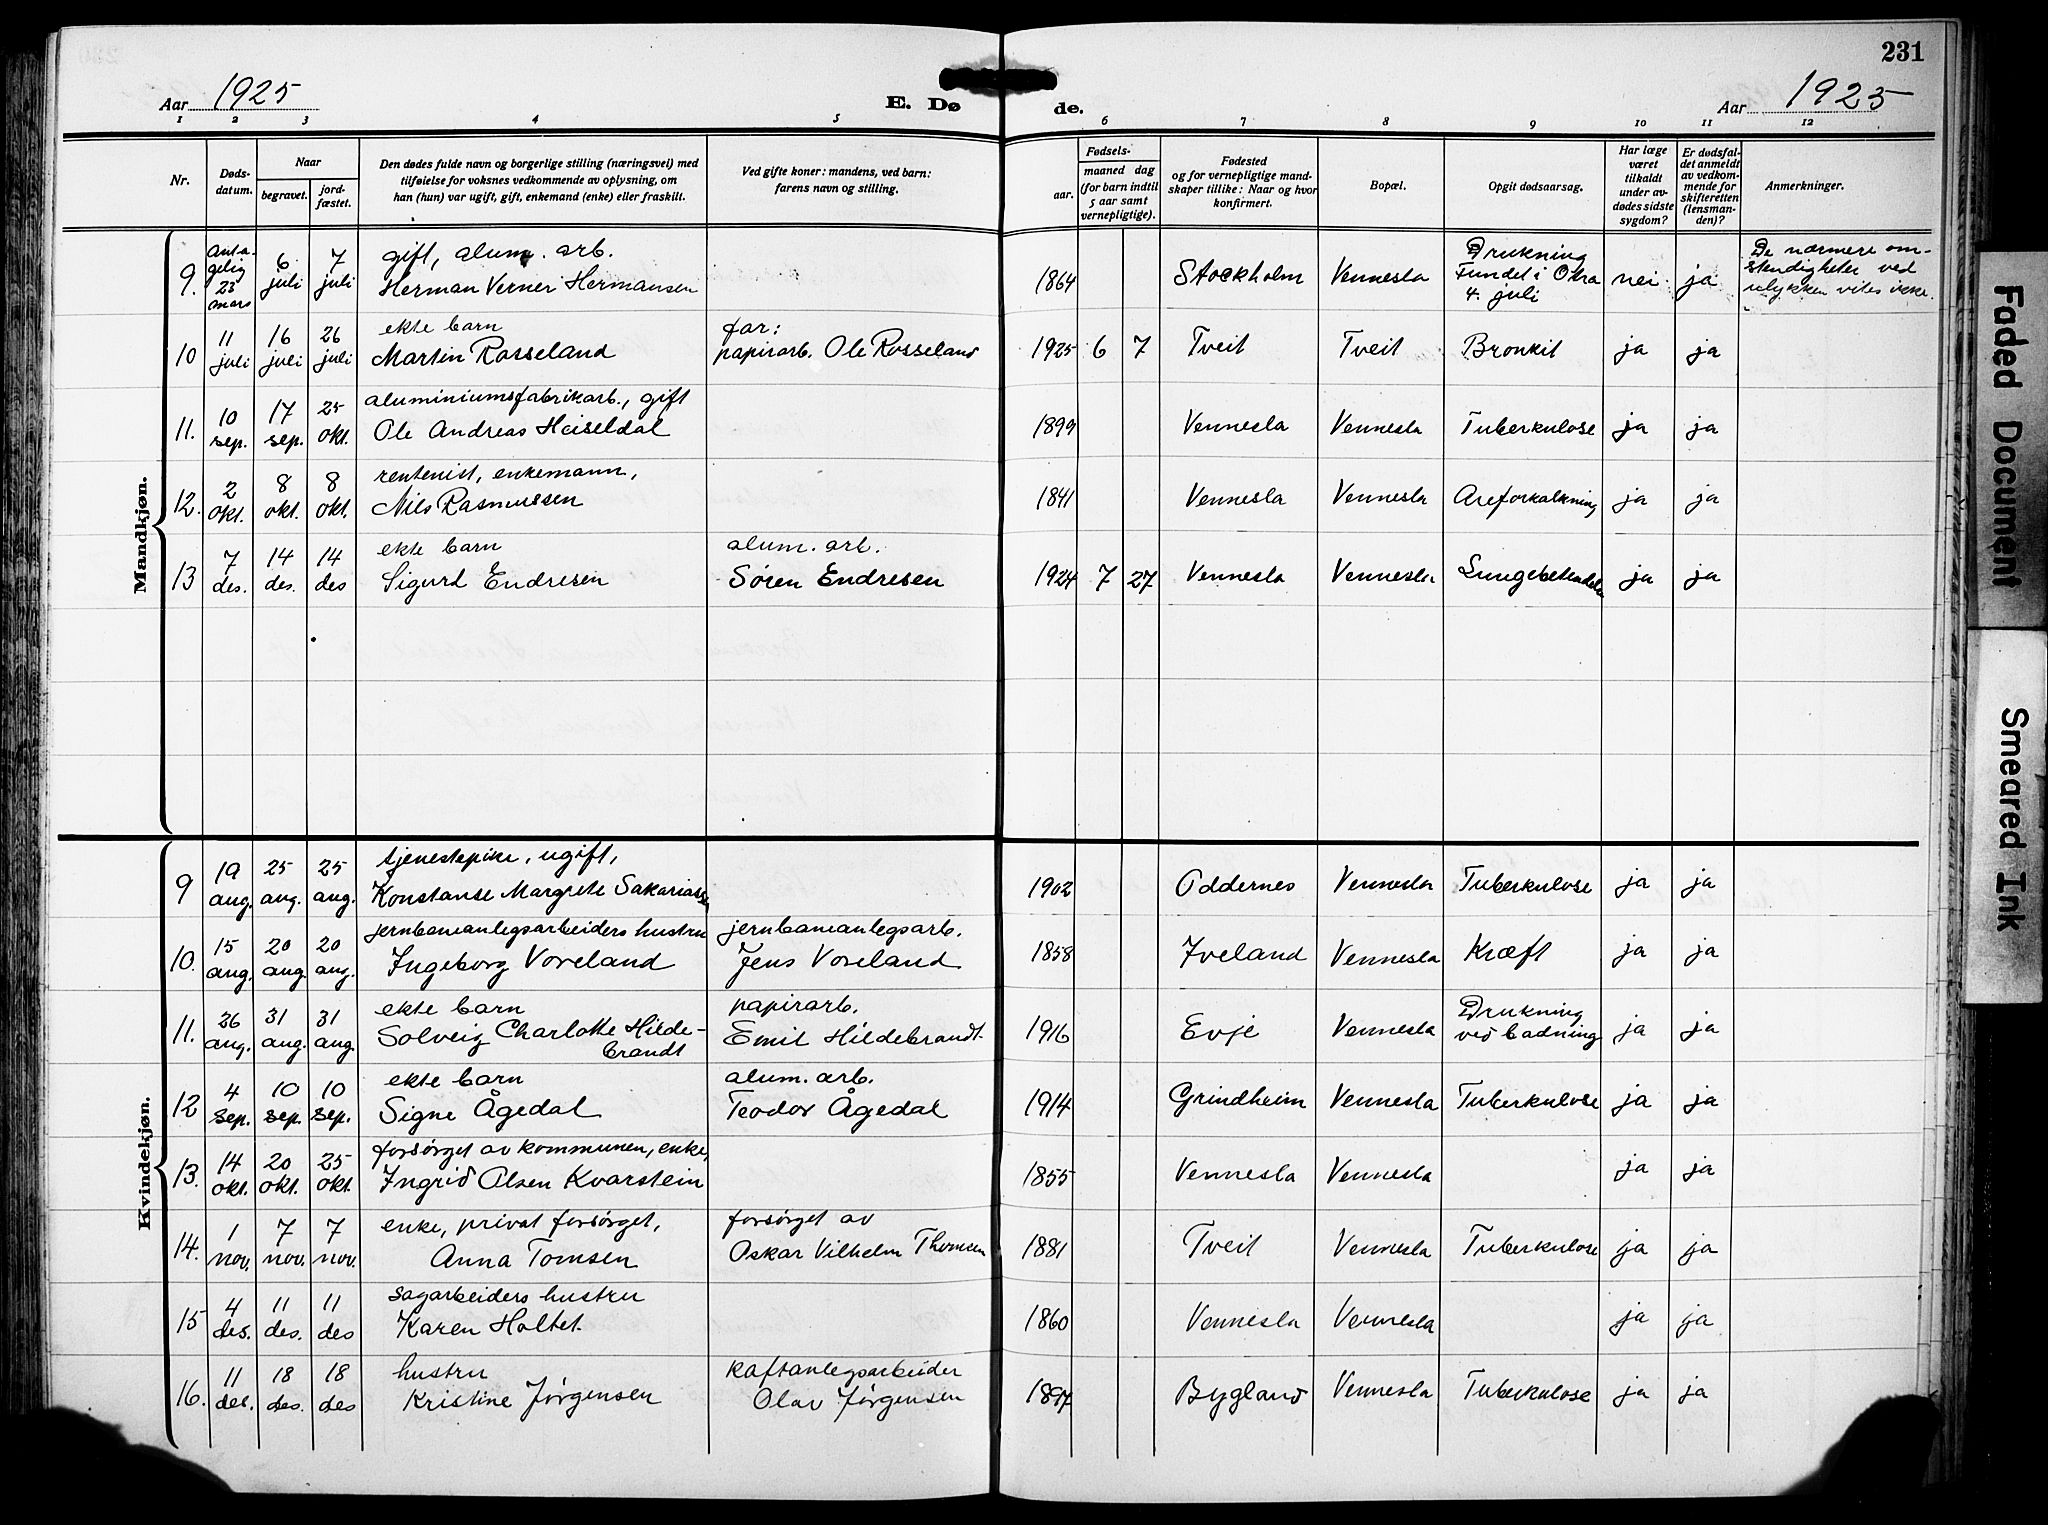 231
Aar 1925
E. Dø de.
Aar 1925
1 2 3 4 5 6 7 8 9 10 11 12
Nr.
Døds-
datum.
Naar
begravet.
jord-
fæstet.
Den dødes fulde navn og borgerlige stilling (næringsvei) med
tilføielse for voksnes vedkommende av oplysning, om
han (hun) var ugift, gift, enkemand (enke) eller fraskilt.
Ved gifte koner: mandens, ved barn:
farens navn og stilling.
Fødsels-
aar.
maaned dag
(for barn indtil
5 aar samt
vernepligtige).
Fødested
og for vernepligtige mand-
skaper tillike: Naar og hvor
konfirmert.
Bopæl.
Opgit dødsaarsag.
Har læge
været
tilkaldt
under av-
dødes sidste
sygdom?
Er dødsfal-
det anmeldt
av vedkom-
mende for
skifteretten
(lensman-
den)?
Anmerkninger.
Mandkjøn.
9. Anta-
gelig
23
mars
6
juli
7
juli
gift, alum. arb.
Herman Verner Hermansen
1864 Stockholm Vennesla
Drukning
Fundet i Otra
4. juli
nei ja
De nærmere om-
stendigheter ved
ulykken vites ikke.
10 11
juli
16
juli
26
juli
ekte barn
Martin Rosseland
far:
papirarb. Ole Rosseland
1925 6 7 Tveit Tveit Bronkit ja ja
11. 10
sep.
17
sep.
25
okt.
aluminiumsfabrikarb., gift
Ole Andreas Heiseldal
1899 Vennesla Vennesla Tuberkulose ja ja
12. 2
okt.
8
okt.
8
okt.
rentenist, enkemann,
Nils Rasmussen
1841 Vennesla Vennesla Areforkalkning ja ja
13 7
des.
14
des.
14
des
ekte barn
Sigurd Endresen
alum. arb.
Søren Endresen
1924 7 27 Vennesla Vennesla Lungebetendelse ja ja
Kvindekjøn.
9 19
aug.
25
aug.
25
aug.
tjenestepike, ugift,
Konstanse Margrete Sakariassen
1902 Oddernes Vennesla Tuberkulose ja ja
10. 15
aug.
20
aug.
20
aug.
jernbaneanlegsarbeiders hustru
Ingeborg Voreland
jernbaneanlegsarb.
Jens Voreland
1858 Iveland Vennesla Kræft ja ja
11. 26
aug.
31
aug.
31
aug
ekte barn
Solveig Charlotte Hilde-
brandt
papirarb.
Emil Hildebrandt.
1916 Evje Vennesla
Drukning
ved badning
ja ja
12 4
sep.
10
sep.
10
sep.
ekte barn
Signe Ågedal
alum. arb.
Teodor Ågedal
1914 Grindheim Vennesla Tuberkulose ja ja
13. 14
okt.
20
okt.
25
okt.
forsørget av kommunen, enke,
Ingrid Olsen Kvarstein
1855 Vennesla Vennesla ja ja
14. 1
nov.
7
nov.
7
nov.
enke, privat forsørget,
Anna Tomsen
forsørget av
Oskar Vilhelm Thomsen
1881 Tveit Vennesla Tuberkulose ja ja
15 4
des.
11
des.
11
des
sagarbeiders hustru
Karen Holtet.
1860 Vennesla Vennesla ja ja
16. 11
des.
18
des.
18
des
hustru
Kristine Jørgensen
kaftanlegsarbeider
Olav Jørgensen
1897 Bygland Vennesla Tuberkulose ja ja
Faded Document
Smeared Ink